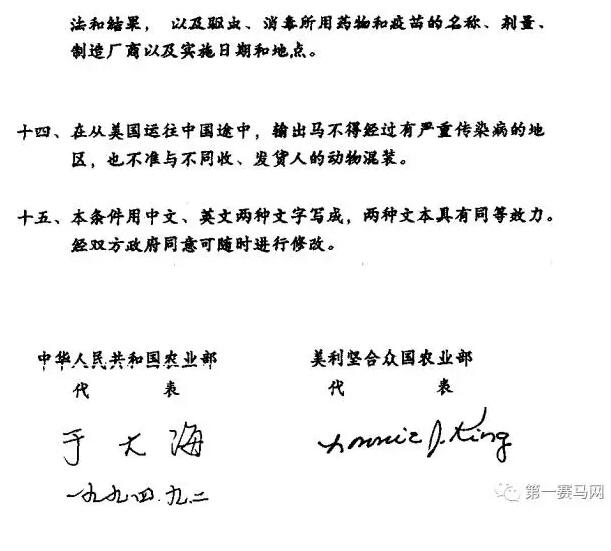 法和结果， 以及驱虫、消毒所用药物和疫苗的名称、剂量、
制造厂商以及实施日期和地点。
十四、在从美国运往中国途中，输出马不得经过有严重传染病的地
区，也不准与不同收、发货人的动物混装。
十五、本条件用中文、英文两种文字写成，两种文本具有同等效力。
经双方政府同意可随时进行修改。
中华人民共和国农业部 美利坚合众国农业部
代 表 代 表
于大海 Lonnie J. King
一九九四.九.二
第一赛马网